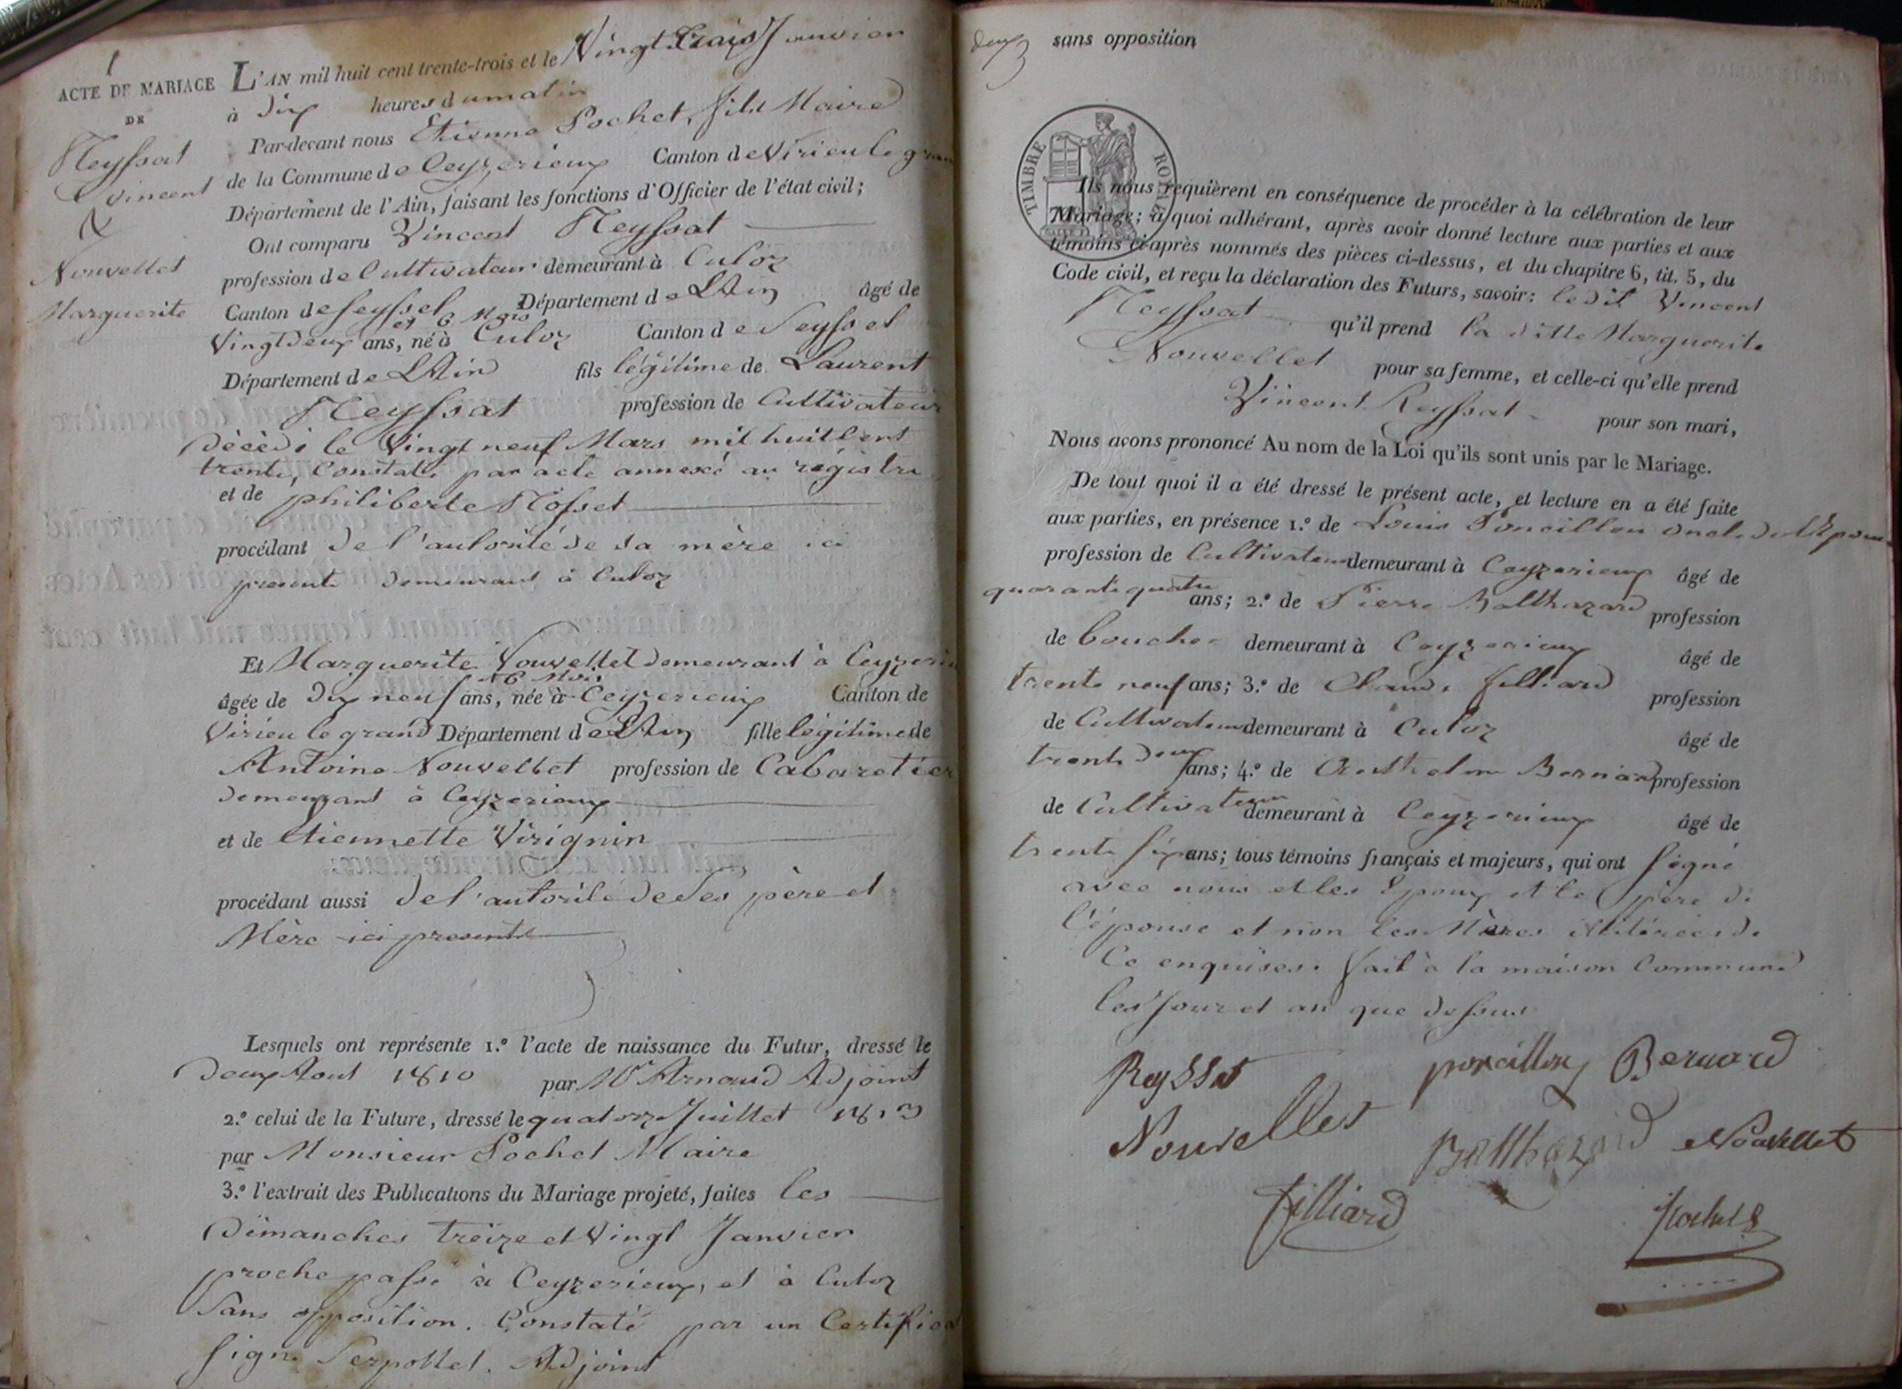 1
ACTE DE MARIAGE
DE
Reyssat
Vincent
&
Nouvellet
Marguerite
L'AN mil huit cent trente-trois et le Vingt trois Janvier
à dix heures du matin
Par-devant nous Etienne Pochet, fils Maire
de la Commune de Ceyzerieux Canton de Virieu le grand
Département de l'Ain, faisant les fonctions d'Officier de l'état civil;
Ont comparu Vincent Reyssat
profession de Cultivateur demeurant à Culoz
Canton de Seyssel Département de L'Ain âgé de
et 6 Mois
Vingt deux ans, né à Culoz Canton de Seyssel
Département de L'Ain fils légitime de Laurent
Reyssat profession de Cultivateur
décédé le Vingt neuf Mars mil huit Cent
trente, Constaté par acte annexé au régistre
et de philiberte Rosset
procédant de l'autorité de sa mère ici
presente demeurant à Culoz
Et Marguerite Nouvellet demeurant à Ceyzerieu
et 6 Mois
âgée de dix neuf ans, née à Ceyzerieux Canton de
Virieu le grand Département de L'Ain fille légitime de
Antoine Nouvellet profession de Cabaretier
demeurant à Ceyzerieux
et de Etiennette Virignin
procédant aussi de l'autorité de ses père et
Mère ici presents
Lesquels ont représente 1.º l'acte de naissance du Futur, dressé le
deux Aout 1810 par Mr Arnoud Adjoint
2.º celui de la Future, dressé le quatorze Juillet 1813
par Monsieur Pochet Maire
3.º l'extrait des Publications du Mariage projeté, faites les
dimanches treize et Vingt Janvier
proche passé à Ceyzerieux, et à Culoz
Sans opposition. Constaté par un Certificat
signé Serpollet. Adjoint
deux
sans opposition
TIMBRE ROYAL
Ils nous requièrent en conséquence de procéder à la célébration de leur
Mariage; à quoi adhérant, après avoir donné lecture aux parties et aux
témoins ci-après nommés des pièces ci-dessus, et du chapitre 6, tit. 5, du
Code civil, et reçu la déclaration des Futurs, savoir: le dit Vincent
Reyssat qu'il prend la ditte Marguerite
Nouvellet pour sa femme, et celle-ci qu'elle prend
Vincent Reyssat pour son mari,
Nous avons prononcé Au nom de la Loi qu'ils sont unis par le Mariage.
De tout quoi il a été dressé le présent acte, et lecture en a été faite
aux parties, en présence 1.º de Louis Poncillon oncle de l'Epoux
profession de Cultivateur demeurant à Ceyzerieux âgé de
quarante quatre ans; 2.º de Pierre Balthazard profession
de boucher demeurant à Ceyzerieux âgé de
trente neuf ans; 3.º de Claude filliard profession
de Cultivateur demeurant à Culoz âgé de
trente deux ans; 4.º de Anthelme Bernard profession
de Cultivateur demeurant à Ceyzerieux âgé de
trente six ans; tous témoins français et majeurs, qui ont signé
avec nous et les Epoux et le père de
l'épouse et non les Mères illitérées de
Ce enquises. fait à la maison Commune
les jour et an que dessus
Reyssat poncillon Bernard
Nouvellet Balthazard Nouvellet
filliard Pochet